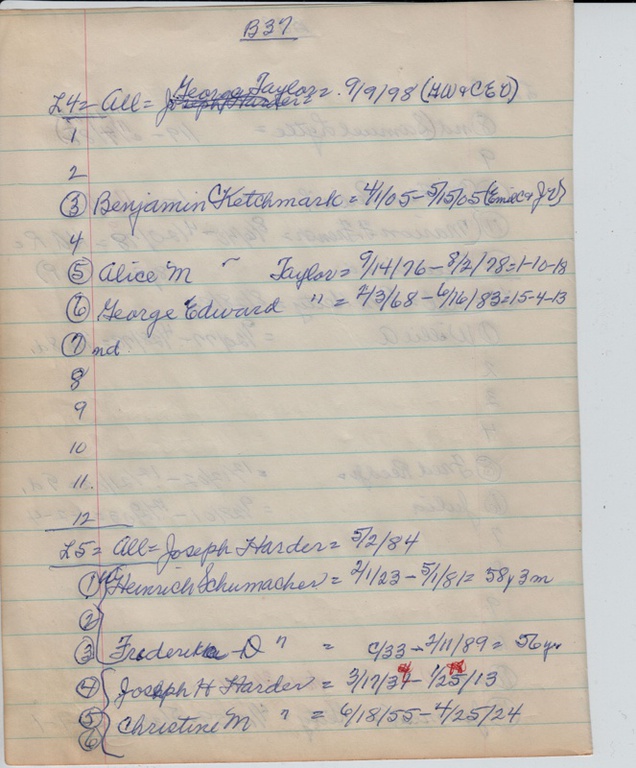 B37
L4 = All = George Taylor = 9/9/98 (HW & CEV)
Joseph Harder
1
2
③ Benjamin C Ketchmark = 4/1/05 - 5/15/05
4
⑤ Alice M " Taylor = 9/14/76 - 8/2/78 = 1-10-18
⑥ George Edward " = 2/3/68 - 6/16/83 = 15-4-13
⑦ nd.
8
9
10
11.
12
L5 = All = Joseph Harder = 5/2/84
① Heinrich Schumacher = 2/1/23 - 5/1/81 = 58y 3m
②
③ Frederika D " = c/33 - 2/11/89 = 56 yr
④ Joseph H Harder = 3/17/34 - 1/25/13
⑤ Christine M " = 6/18/55 - 4/25/24
⑥